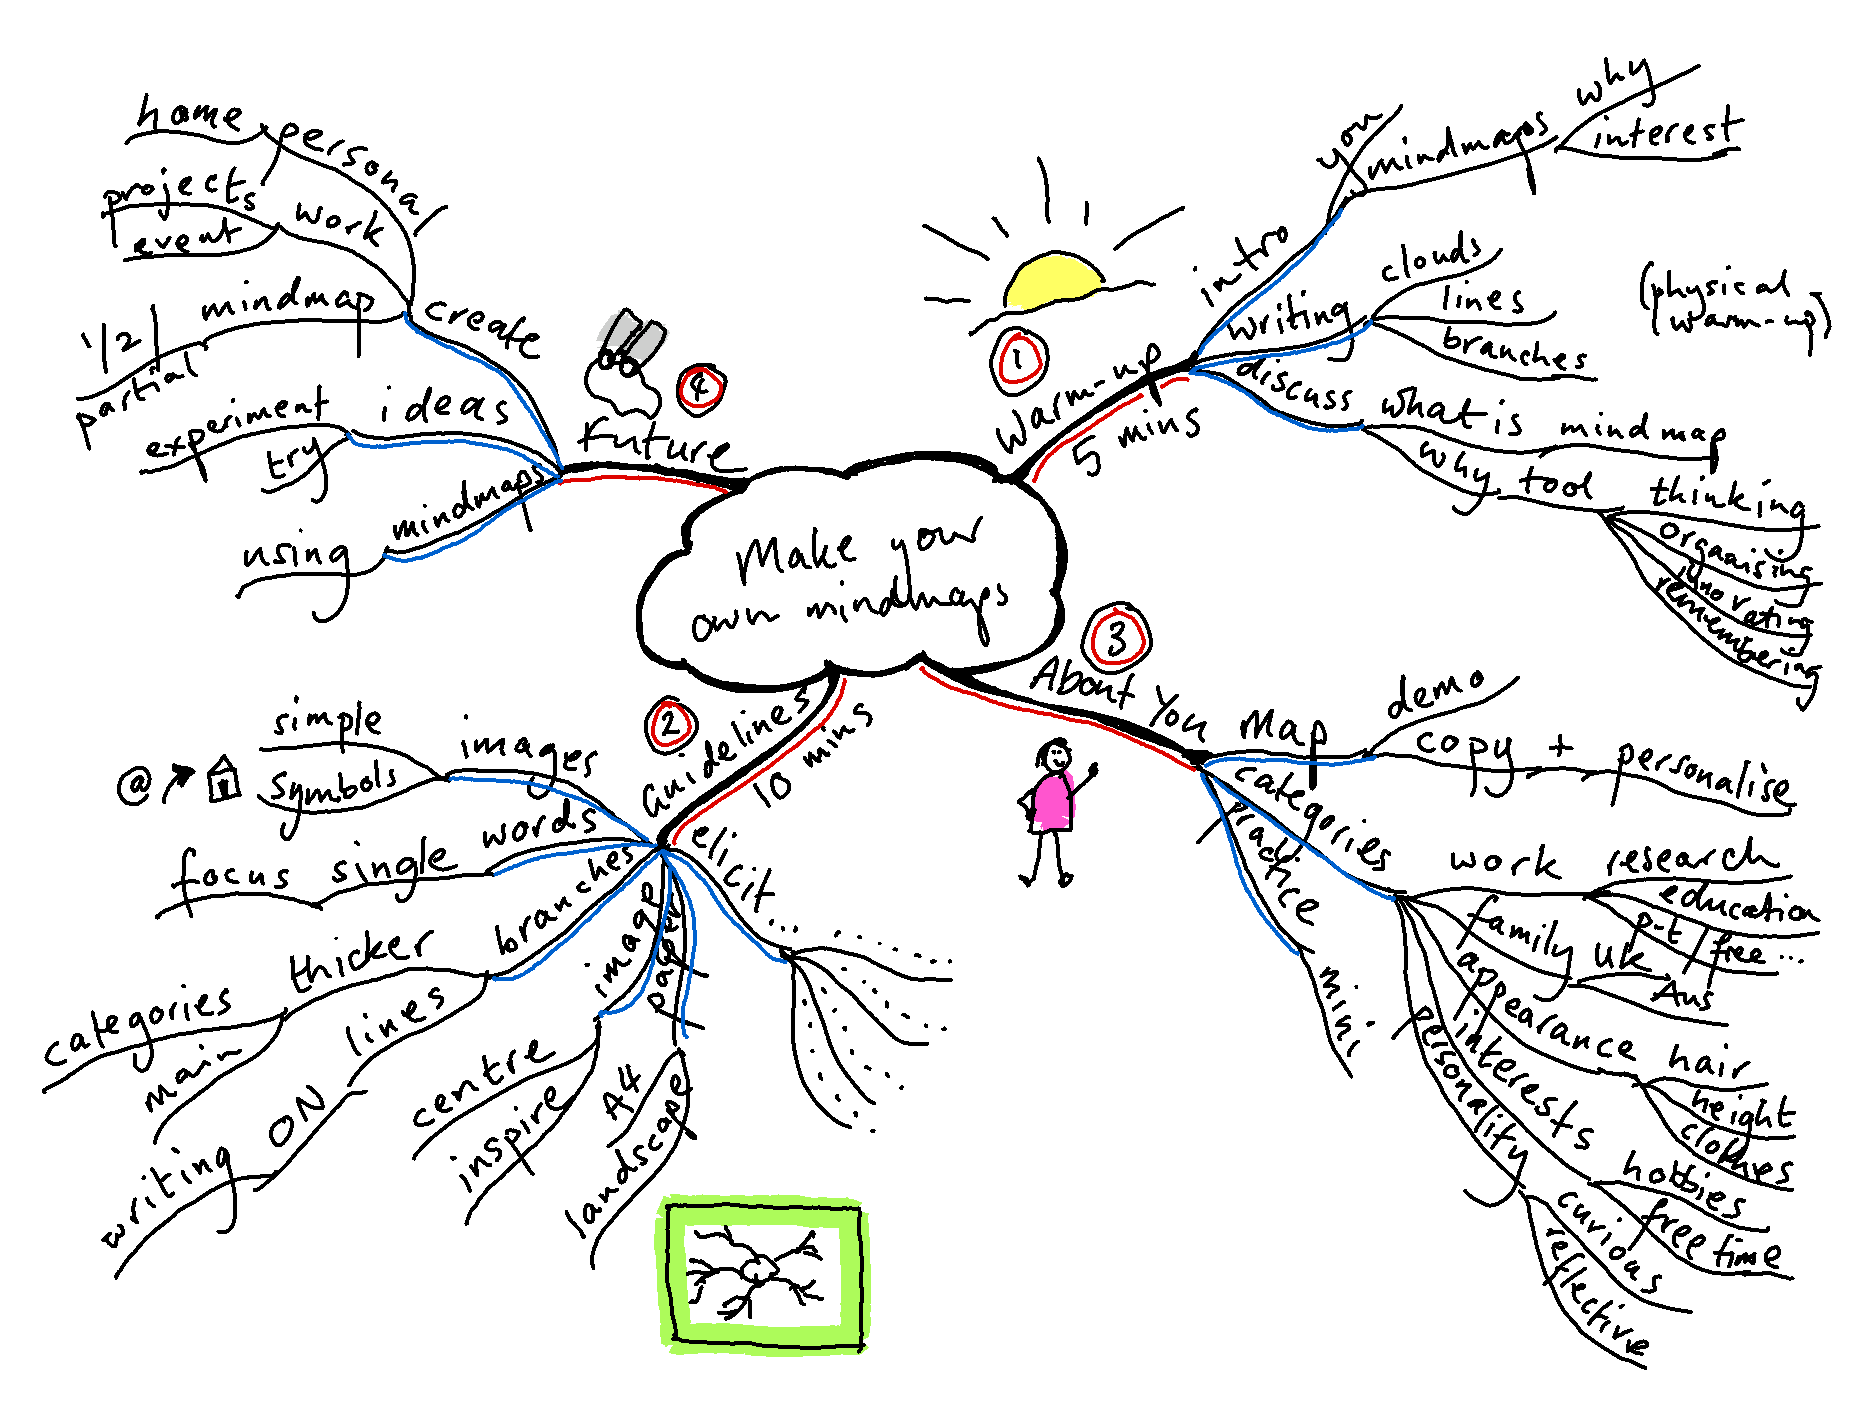 Make your
own mindmaps
1
Warm-up
5 mins
intro
you
mindmaps
why
interest
writing
clouds
lines
branches
(physical
warm-up)
discuss
what is mindmap
why tool
thinking
organising
innovating
remembering
2
Guidelines
10 mins
images
simple
symbols
@
words
single
focus
branches
thicker
categories
main
lines
ON
writing
image
centre
inspire
paper
A4
landscape
elicit...
3
About You
Map
demo
copy + personalise
categories
work
research
education
p-t / free...
family
UK
Aus
appearance
hair
height
clothes
interests
hobbies
free time
personality
curious
reflective
practice
mini
4
Future
create
personal
home
work
projects
event
mindmap
1/2 /
partial
ideas
experiment
try
mindmaps
using